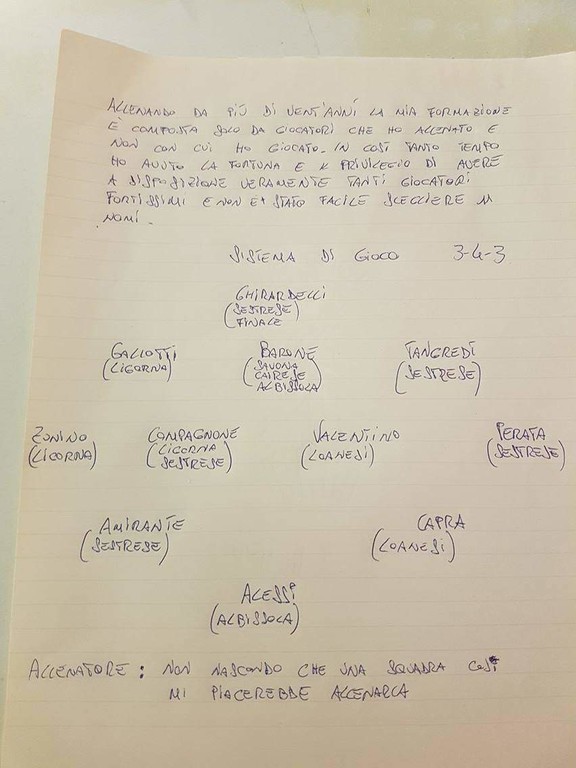 ALLENANDO DA PIÙ DI VENT'ANNI LA MIA FORMAZIONE
È COMPOSTA SOLO DA GIOCATORI CHE HO ALLENATO E
NON CON CUI HO GIOCATO. IN COSÌ TANTO TEMPO
HO AVUTO LA FORTUNA E IL PRIVILEGIO DI AVERE
A DISPOSIZIONE VERAMENTE TANTI GIOCATORI
FORTISSIMI E NON E' STATO FACILE SCEGLIERE 11
NOMI.
SISTEMA DI GIOCO 3-4-3
GHIRARDELLI
(SESTRESE)
FINALE
GALLOTTI BARONE TANGREDI
(LIGORNA) (SAVONA (SESTRESE)
CAIRESE
ALBISSOLA)
ZUNINO COMPAGNONE VALENTINO PERATA
(LIGORNA) (LIGORNA (LOANESI) (SESTRESE)
SESTRESE)
AMIRANTE CAPRA
(SESTRESE) (LOANESI)
ALESSI
(ALBISSOLA)
ALLENATORE: NON NASCONDO CHE UNA SQUADRA COSÌ
MI PIACEREBBE ALLENARLA